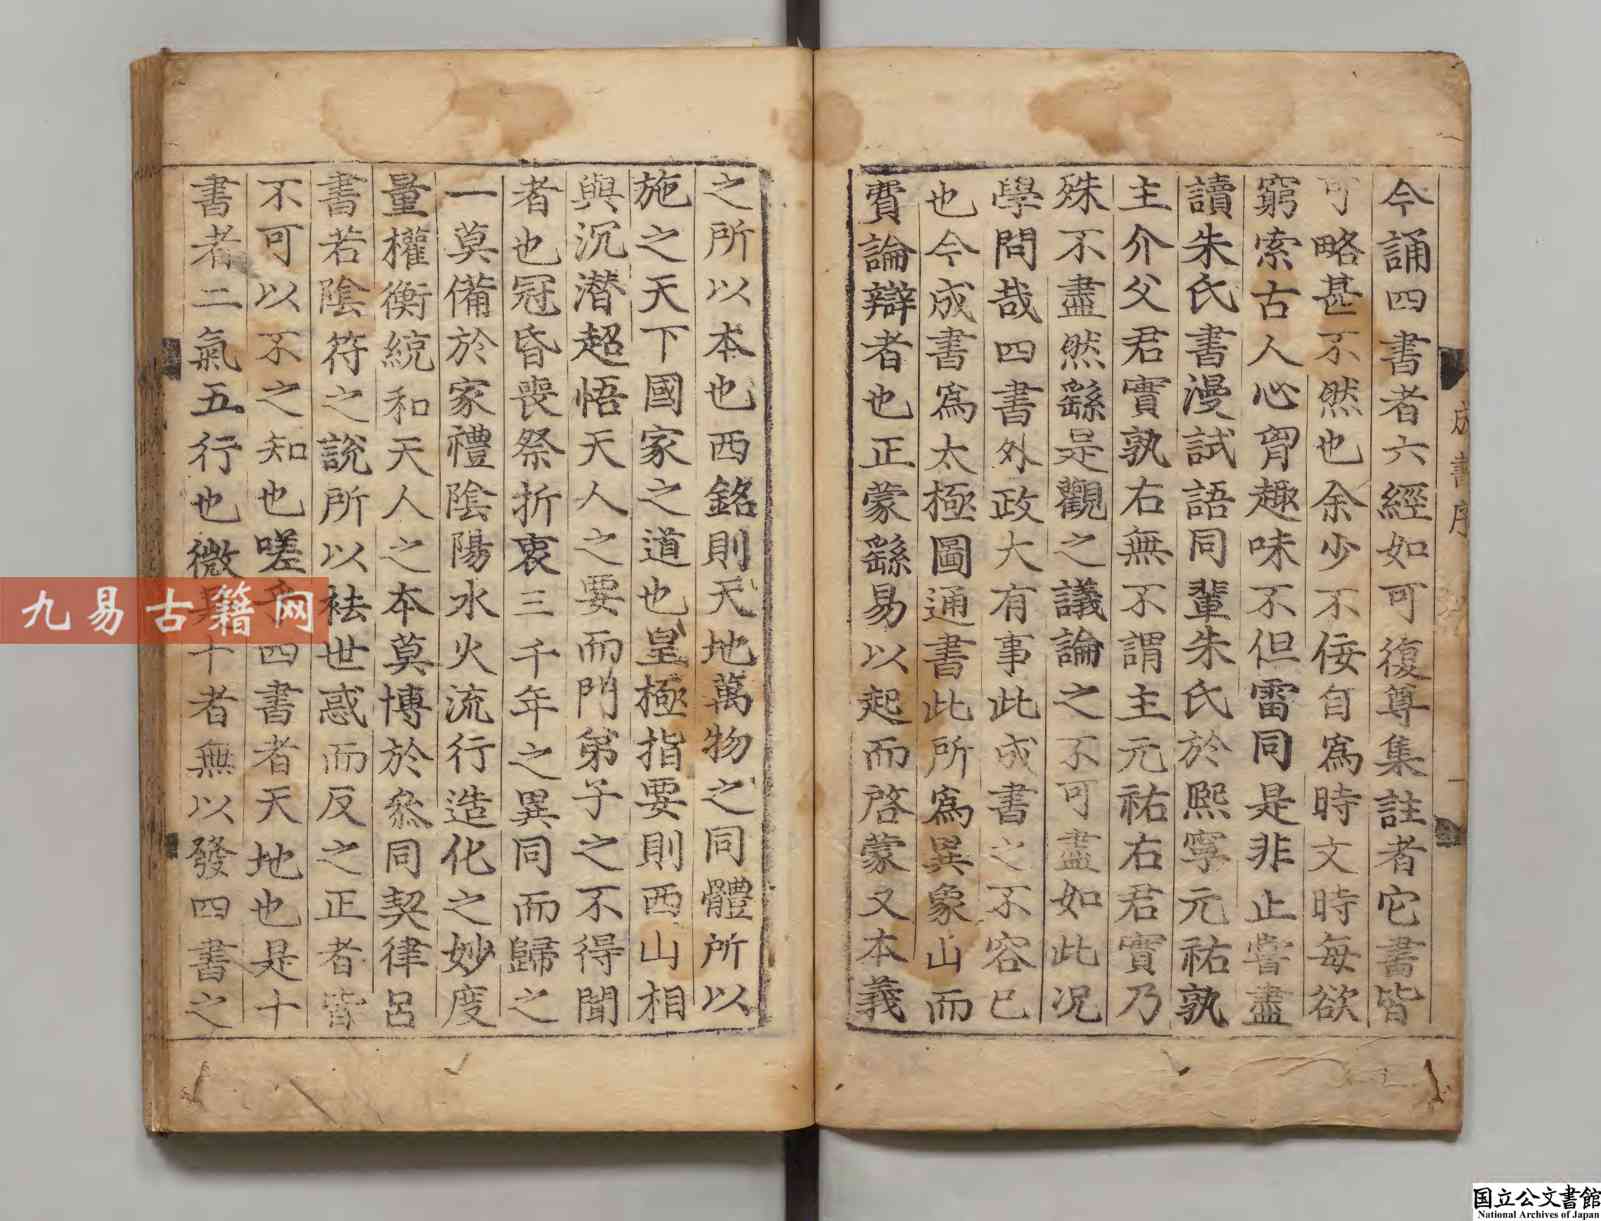 今誦四書者六經如可復尊集註者它書皆
可略甚不然也余少不佞自爲時文時每欲
窮索古人心胷趣味不但雷同是非止嘗盡
讀朱氏書漫試語同輩朱氏於熙寧元祐孰
主介父君實孰右無不謂主元祐右君實乃
殊不盡然繇是觀之議論之不可盡如此况
學問哉四書外政大有事此成書之不容已
也今成書爲太極圖通書此所爲異象山而
費論辯者也正蒙繇易以起而啓蒙又本義
之所以本也西銘則天地萬物之同體所以
施之天下國家之道也皇極指要則西山相
與沉潜超悟天人之要而門弟子之不得聞
者也冠昏喪祭折衷三千年之異同而歸之
一莫備於家禮陰陽水火流行造化之妙度
量權衡統和天人之本莫博於叅同契律吕
書若陰符之說所以袪世惑而反之正者皆
不可以不之知也嗟乎四書者天地也是十
書者二氣五行也微是十者無以發四書之
成書序
一
九易古籍网
国立公文書館
National Archives of Japan